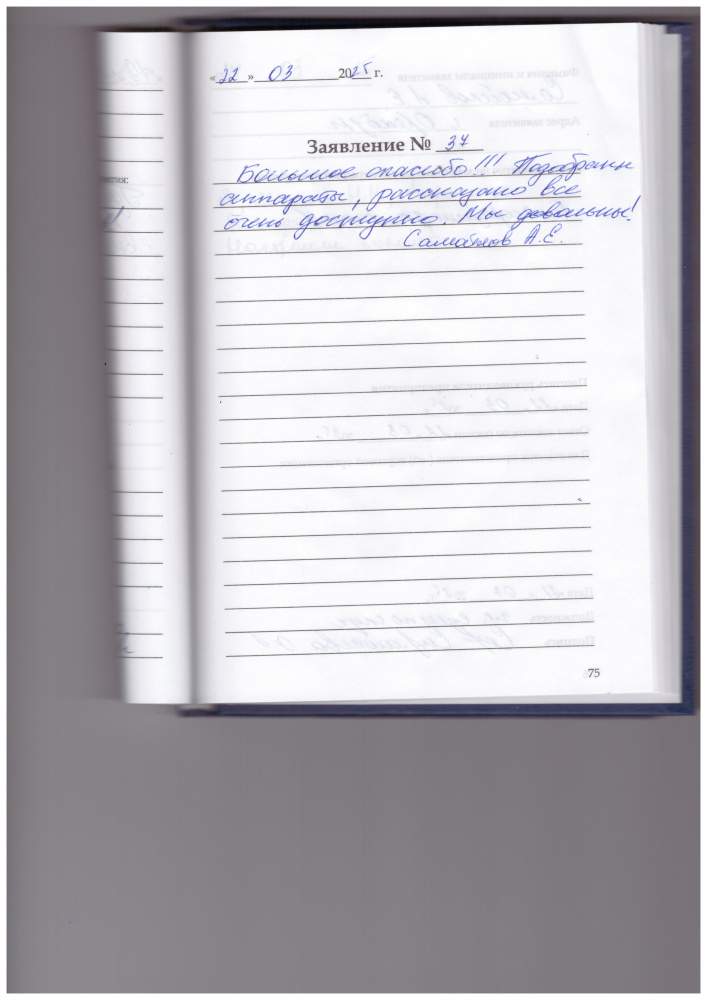 «22» 03 2025 г.
Заявление № 37
Большое спасибо!!! Подобраны
аппараты, рассказано все
очень доступно. Мы довольны!
А.Е.
75